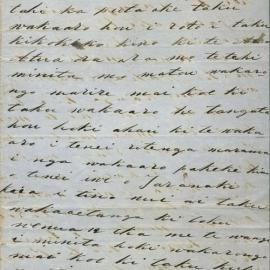 tahi ka puta ake taku
wakaaro hou i roto i taku
kikokiko kino ki te
Atua ra ara me tetahi
minita me matou wakaro
ngo marire mai koe ki
taku wakaaro he tangata
hou hoki ahau ki te waka
aro i tenei ritenga marama
i nga wakaaro pakeke kia
tenei iwi o Taranaki
kara i tino nui ai taku
wakaaetanga ki toku
wenua ka me te wang
i minita hoki wakarong
mai koe ki taku kup